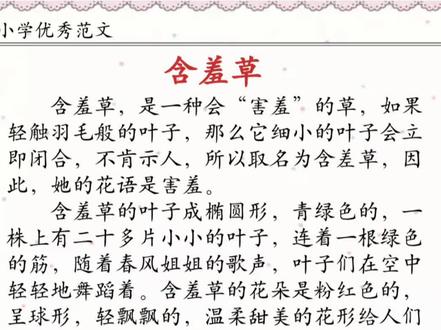 小学优秀范文
含羞草
含羞草，是一种会“害羞”的草，如果
轻触羽毛般的叶子，那么它细小的叶子会立
即闭合，不肯示人，所以取名为含羞草，因
此，她的花语是害羞。
含羞草的叶子成椭圆形，青绿色的，一
株上有二十多片小小的叶子，连着一根绿色
的筋，随着春风姐姐的歌声，叶子们在空中
轻轻地舞蹈着。含羞草的花朵是粉红色的，
呈球形，轻飘飘的，温柔甜美的花形给人们